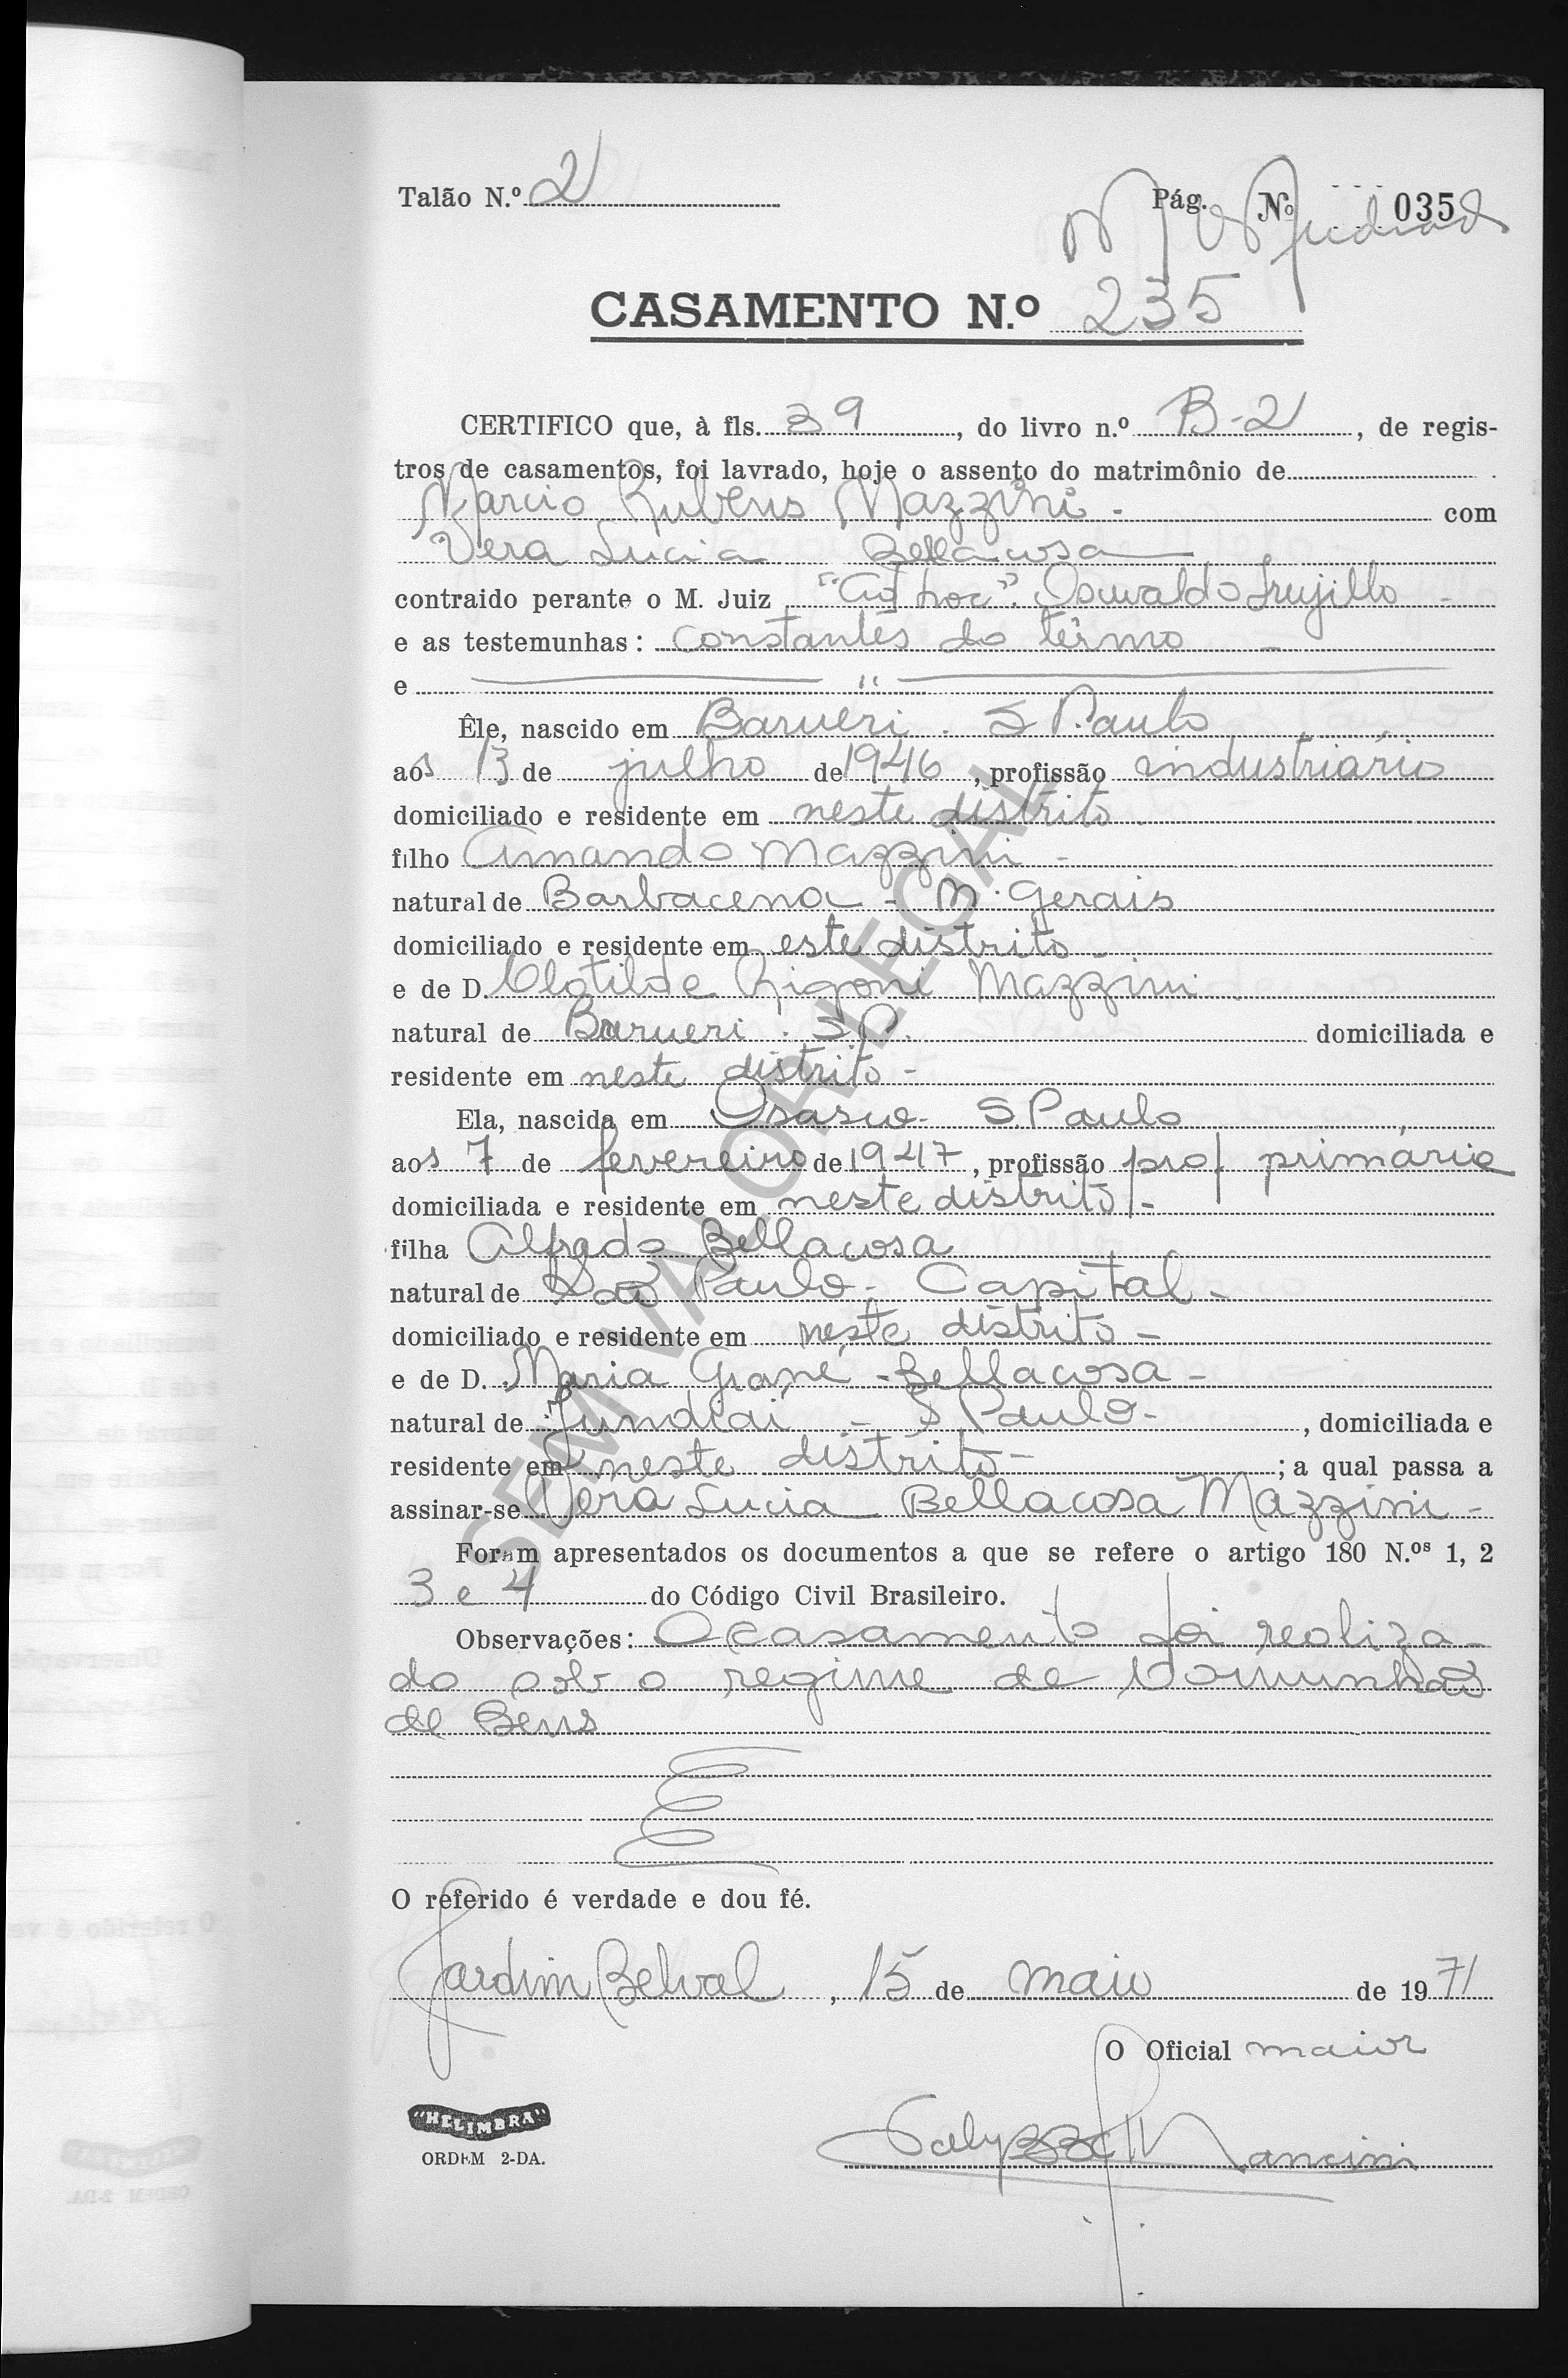 Talão N.º 2
Pág. Nº 035
CASAMENTO N.º 235
CERTIFICO que, à fls. 39, do livro n.º B-2, de regis-
tros de casamentos, foi lavrado, hoje o assento do matrimônio de
Marcio Rubens Mazzini - com
Vera Lucia Bellacosa
contraido perante o M. Juiz "Ad hoc". Oswaldo Trujillo -
e as testemunhas: constantes do têrmo -
e "
Êle, nascido em Barueri. S Paulo
aos 13 de julho de 1946, profissão industriário
domiciliado e residente em neste distrito
filho Armando Mazzini -
natural de Barbacena - M. Gerais
domiciliado e residente em este distrito -
e de D. Clotilde Rigoni Mazzini
natural de Barueri. S.P. domiciliada e
residente em neste distrito -
Ela, nascida em Osasco - S. Paulo
aos 7 de fevereiro de 1947, profissão prof primaria
domiciliada e residente em neste distrito -
filha Alfredo Bellacosa
natural de São Paulo - Capital -
domiciliado e residente em neste distrito -
e de D. Maria - Bellacosa -
natural de Jundiai - S Paulo -, domiciliada e
residente em neste distrito -; a qual passa a
assinar-se Vera Lucia Bellacosa Mazzini -
Foram apresentados os documentos a que se refere o artigo 180 N.ºs 1, 2
3 e 4 do Código Civil Brasileiro.
Observações: O casamento foi realiza-
do sob o regime de Comunhão
de Bens
O referido é verdade e dou fé.
Jardim Belval, 15 de maio de 1971
O Oficial maior
Mancini
"HELIMBRA"
ORDEM 2-DA.
SEM VALOR LEGAL